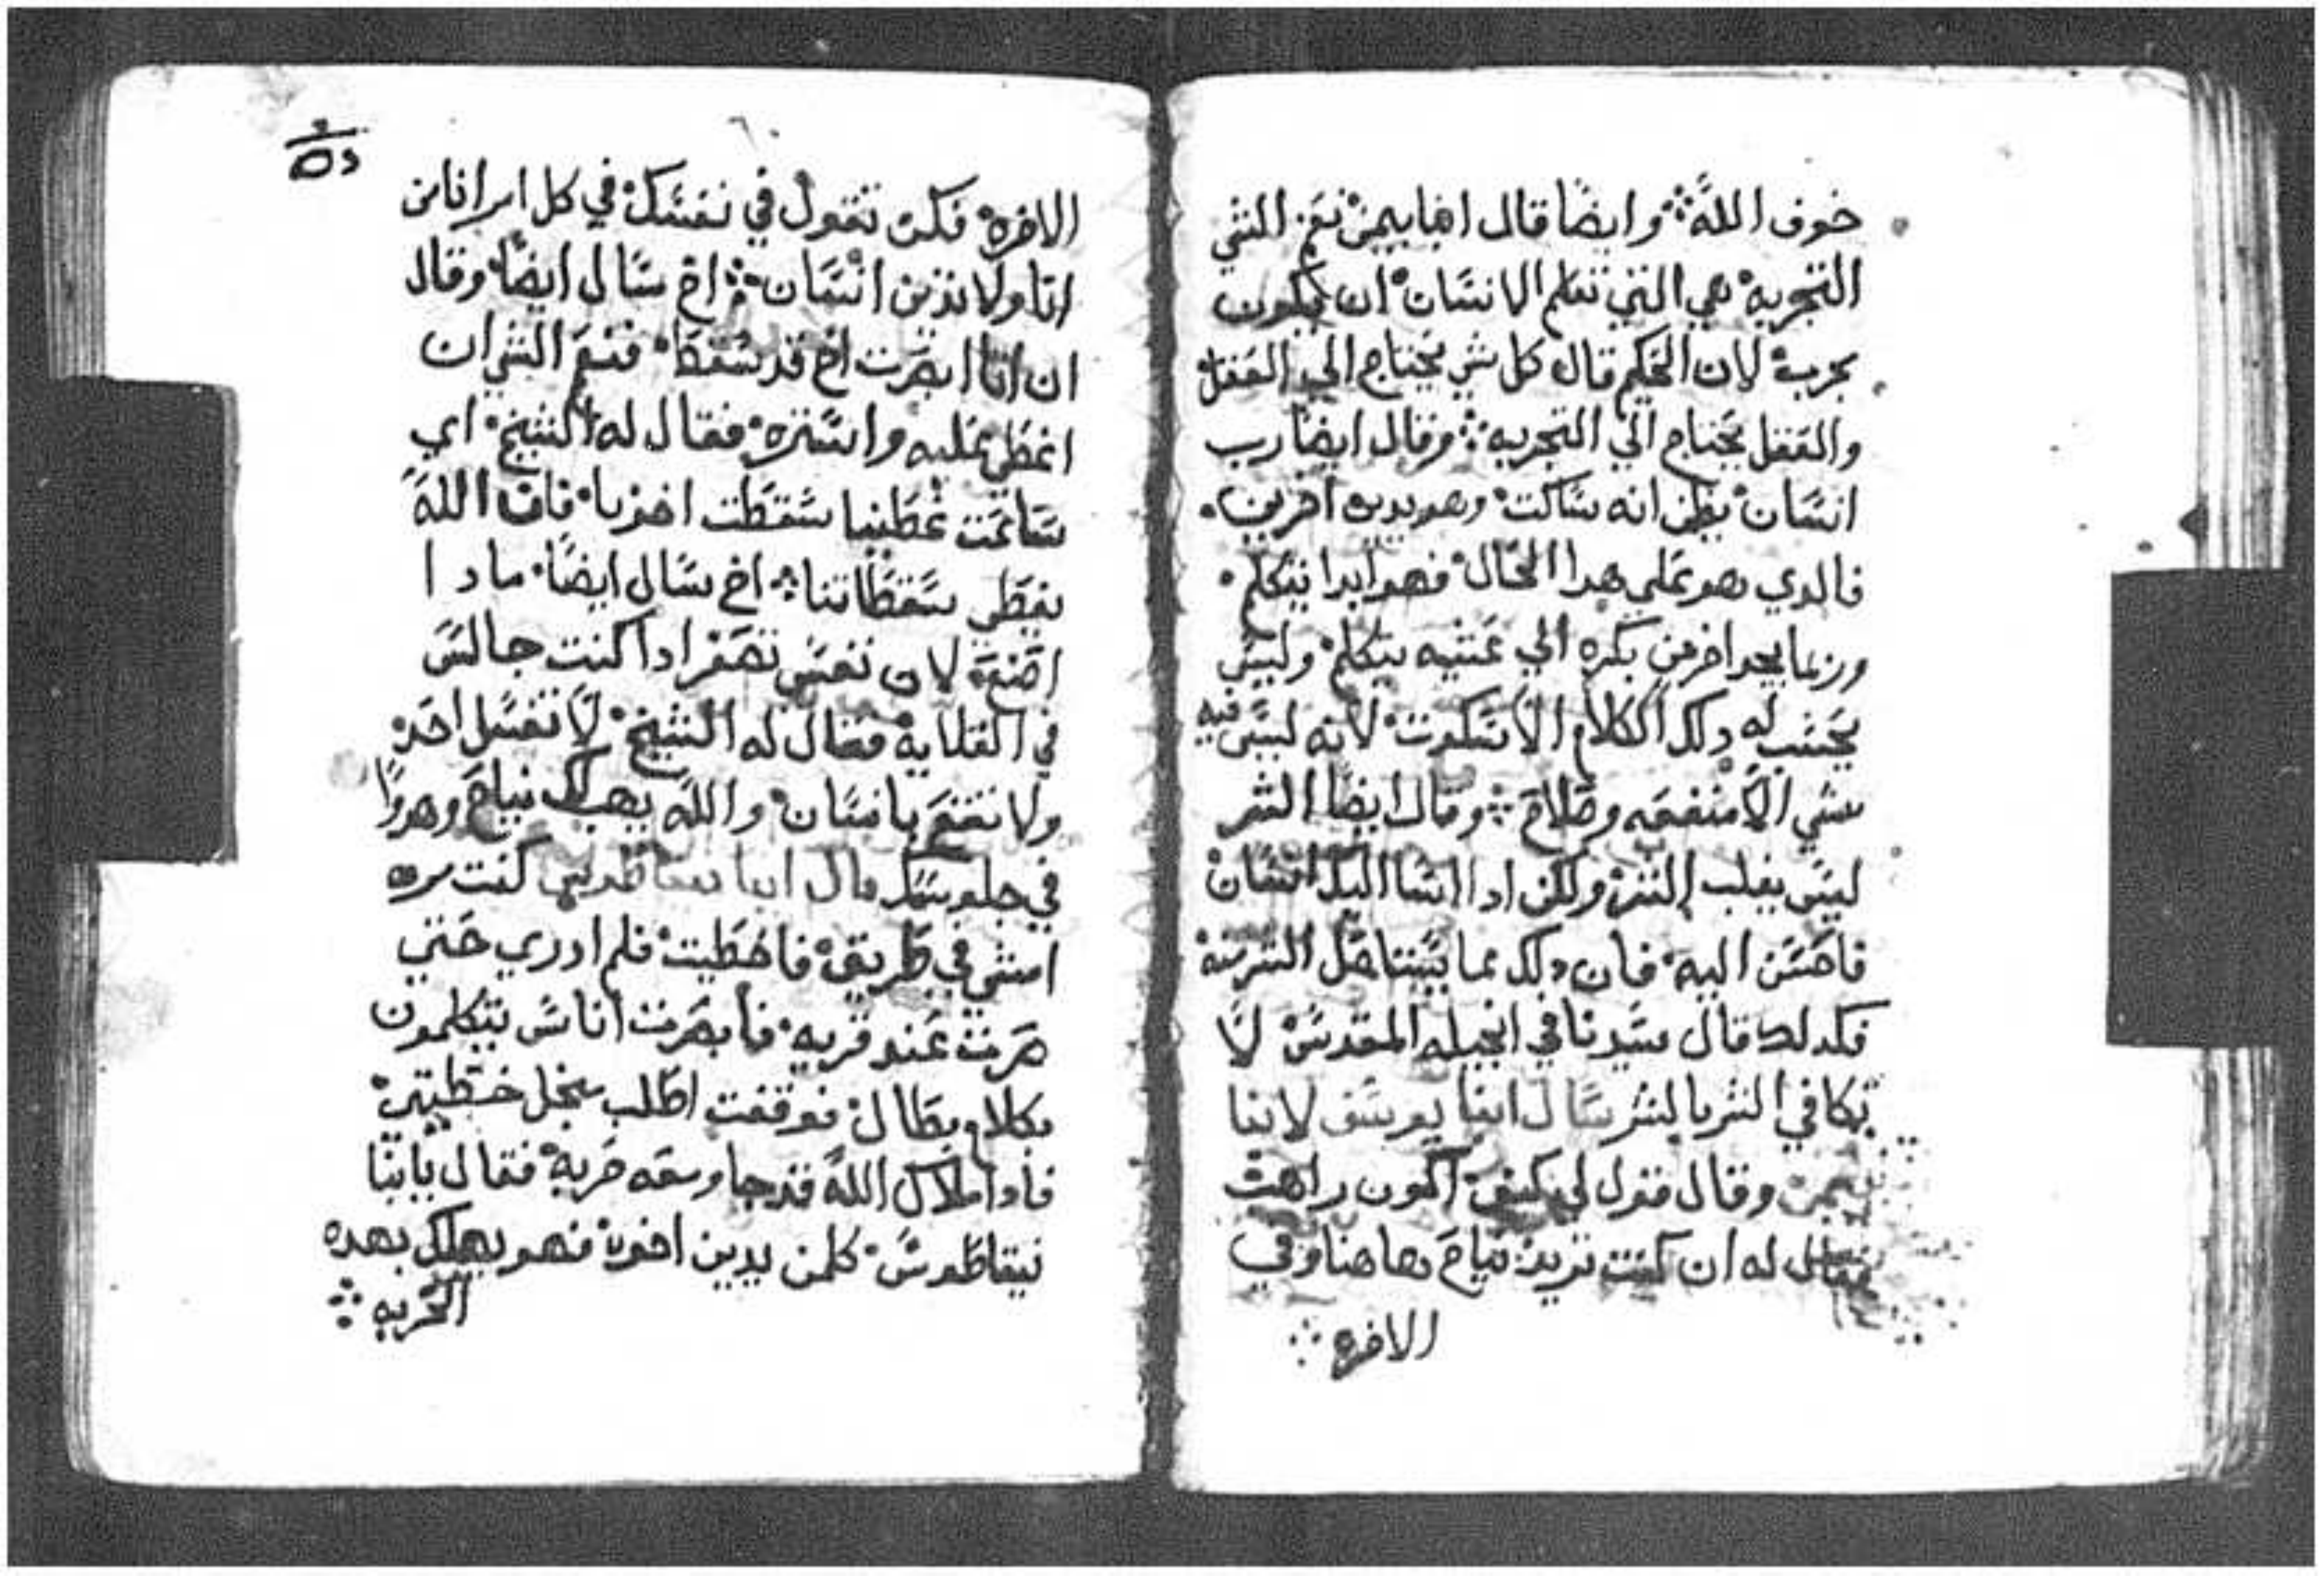 خوف الله ۞ وايضا قال انبا بيمن نعم الشي
التجربه هي التي تعلم الانسان ان يكون
بجربه لان الحكيم قال كل شي يحتاج الي العقل
والعقل يحتاج الي التجربه ۞ وقال ايضا رب
انسان يظن انه ساكت وهو يدين اخرين.
فالدي هو علي هدا الحال فهو ابدا يتكلم.
وربما يجد اخر من بكره الي عشيه يتكلم وليس
يحسب له دلك الكلام الا سكوت لانه ليس فيه
شي الا منفعه وصلاح ۞ وقال ايضا الشر
ليس يغلب الشر ولكن ادا اسا اليك انسان
فاحسن اليه فان دلك مما يستاصل الشر منه
فكدلك قال سيدنا في انجيله المقدس لا
تكافي الشر بالشر سال انبا يوسف لانبا
بيمن وقال قول لي كيف اكون راهب
فقال له ان كنت تريد نياح هاهنا وفي
الاخره ۞
الاخره فكن تقول في نفسك في كل امر انا من
انا ولا تدين انسان ۞ اخ سال ايضا وقال
ان انا ابصرت اخ قد سقط فنعم الشي ان
اغطي عليه واستره فقال له الشيخ اي
ساعت غطينا سقطت اخونا فان الله
يغطي سقطاتنا ۞ اخ سال ايضا مادا
اصنع لان نفسي تصغر ادا كنت جالس
في القلايه فقال له الشيخ لا تغسل احد
ولا تقع بانسان والله يهب لك نياح وهدوا
في جلوسك قال انبا كنت مره
امشي في طريق فاخطيت فلم ادري حتي
صرت عند قريه فابصرت اناس يتكلمون
بكلام بطال فوقفت اطلب من اجل خطيتي
فادا ملاك الله قد جا ومعه حربه فقال يا انبا
نيقاطوس كلمن يدين اخوه فهو يهلك بهده
الحربه ۞